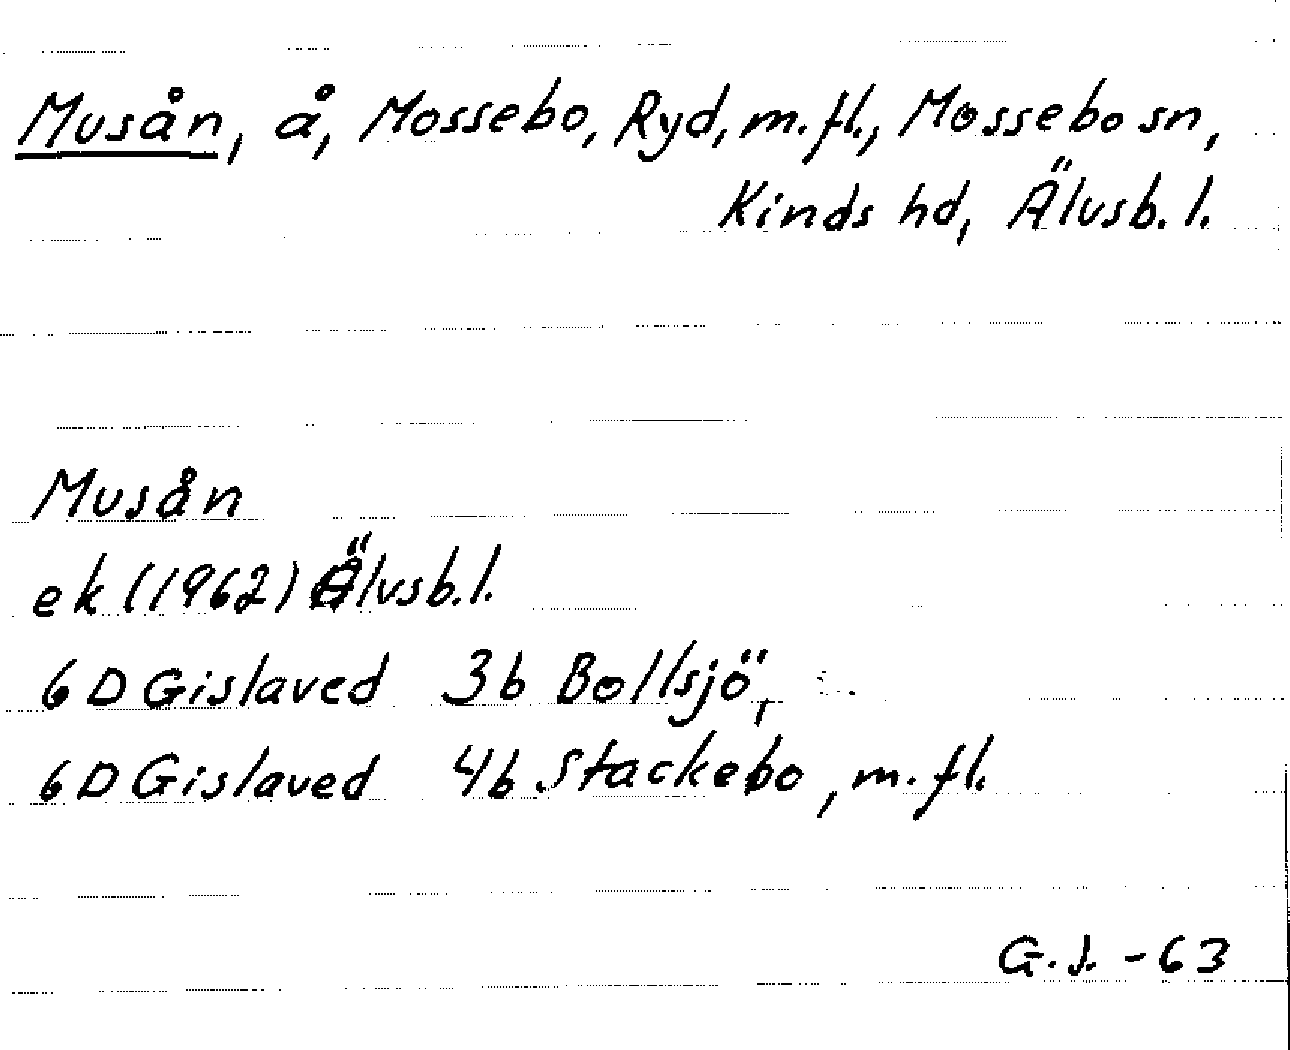 Musån, å, Mossebo, Ryd, m.fl., Mossebo sn,
Kinds hd, Älvsb. l.
Musån
ek (1962) Älvsb. l.
6D Gislaved 3b Bollsjö,
6D Gislaved 4b Stackebo, m.fl.
G.J. -63